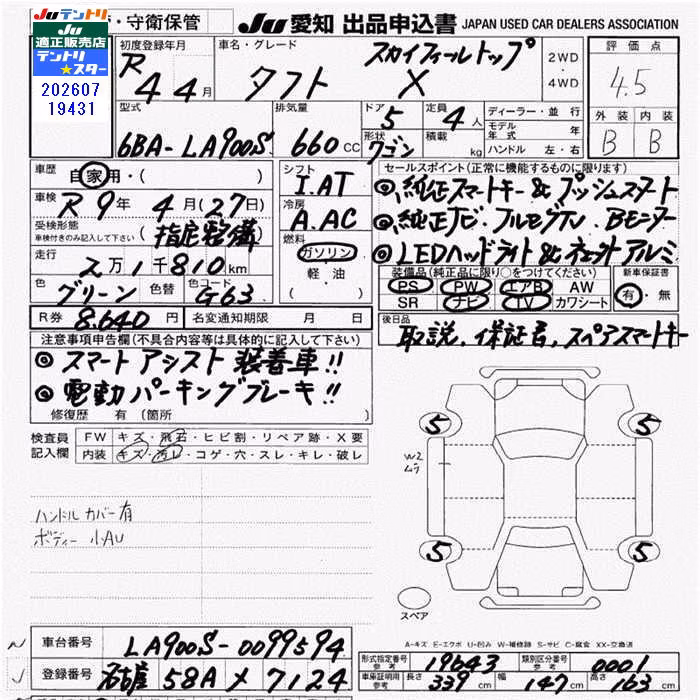 Juテントリ
適正販売店
テントリ
★スター
202607
19431
・守衛保管
Ju 愛知 出品申込書 JAPAN USED CAR DEALERS ASSOCIATION
初度登録年月 R 4 4月
車名・グレード タフト スカイフィールトップ X
2WD・4WD
評価点 4.5
外装 B 内装 B
型式 6BA-LA900S
排気量 660 CC
ドア 5 定員 4人
形状 ワゴン 積載 kg
ディーラー・並行
モデル年式 年
ハンドル 左・右
車歴 自家用・( )
車検 R 9年 4月(27日)
受検形態 車検付きのみ記入して下さい (指定整備)
走行 2万1千810km
色 グリーン 色替 色コード G63
R券 8.640円 名変通知期限 月 日
シフト I.AT
冷房 A.AC
燃料 ガソリン 軽油 ( )
セールスポイント(正常に機能するものに限ります)
◎純正スマートキー&プッシュスタート
◎純正ナビ.フルセグTV.Bモニター
◎LEDヘッドライト&純正アルミ
装備品(純正品に限り○をつけてください) 新車保証書
PS PW エアB AW 有・無
SR ナビ TV カワシート
後日品 取説.保証書.スペアスマートキー
注意事項申告欄(不具合内容等は具体的に記入して下さい)
◎スマートアシスト装着車!!
◎電動パーキングブレーキ!!
修復歴 有(箇所
検査員記入欄 FW キズ・飛石・ヒビ割・リペア跡・X要
内装 キズ・汚レ・コゲ・穴・スレ・キレ・破レ
ハンドルカバー有
ボディー小AU
5 5
W2
ムラ
5 5
スペア
A-キズ E-エクボ U-凹み W-補修跡 S-サビ C-腐食 XX-交換済
車台番号 LA900S-0099594
登録番号 名古屋 58A メ 7124
形式指定番号 参考 19643 類別区分番号 参考 0001
車庫証明用 参考 長さ 339cm 幅 147cm 高さ 163cm